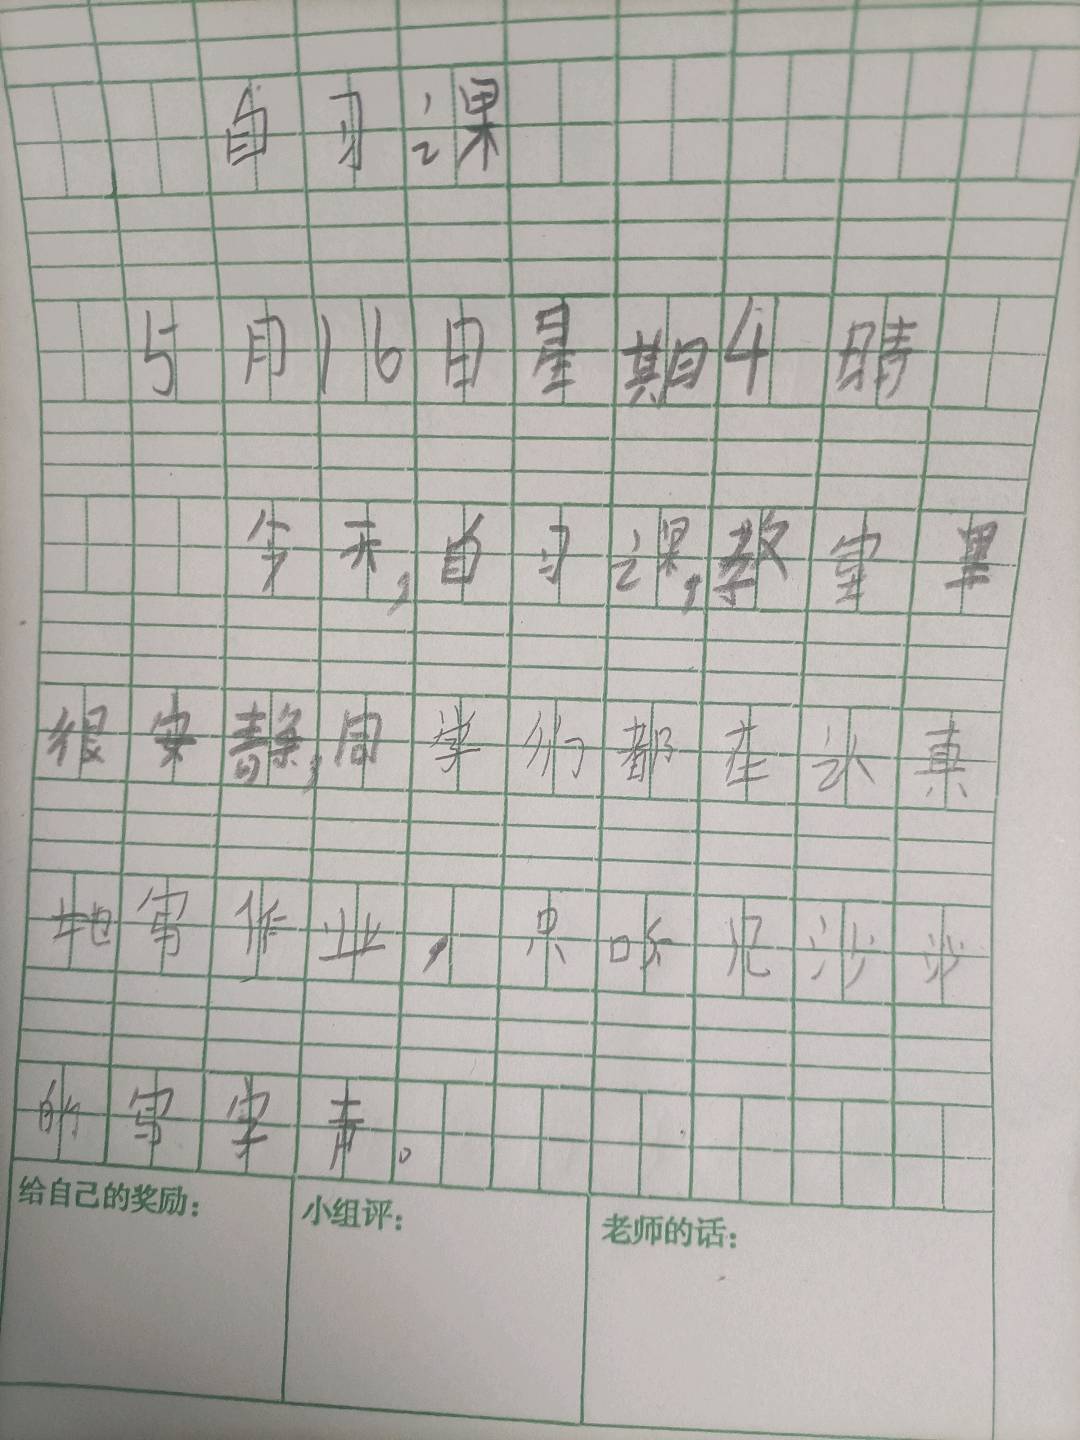 自习课
5月16日星期4晴
今天,自习课,教室里
很安静,同学们都在认真
地写作业,只听见沙沙
的写字声。
给自己的奖励:
小组评:
老师的话: